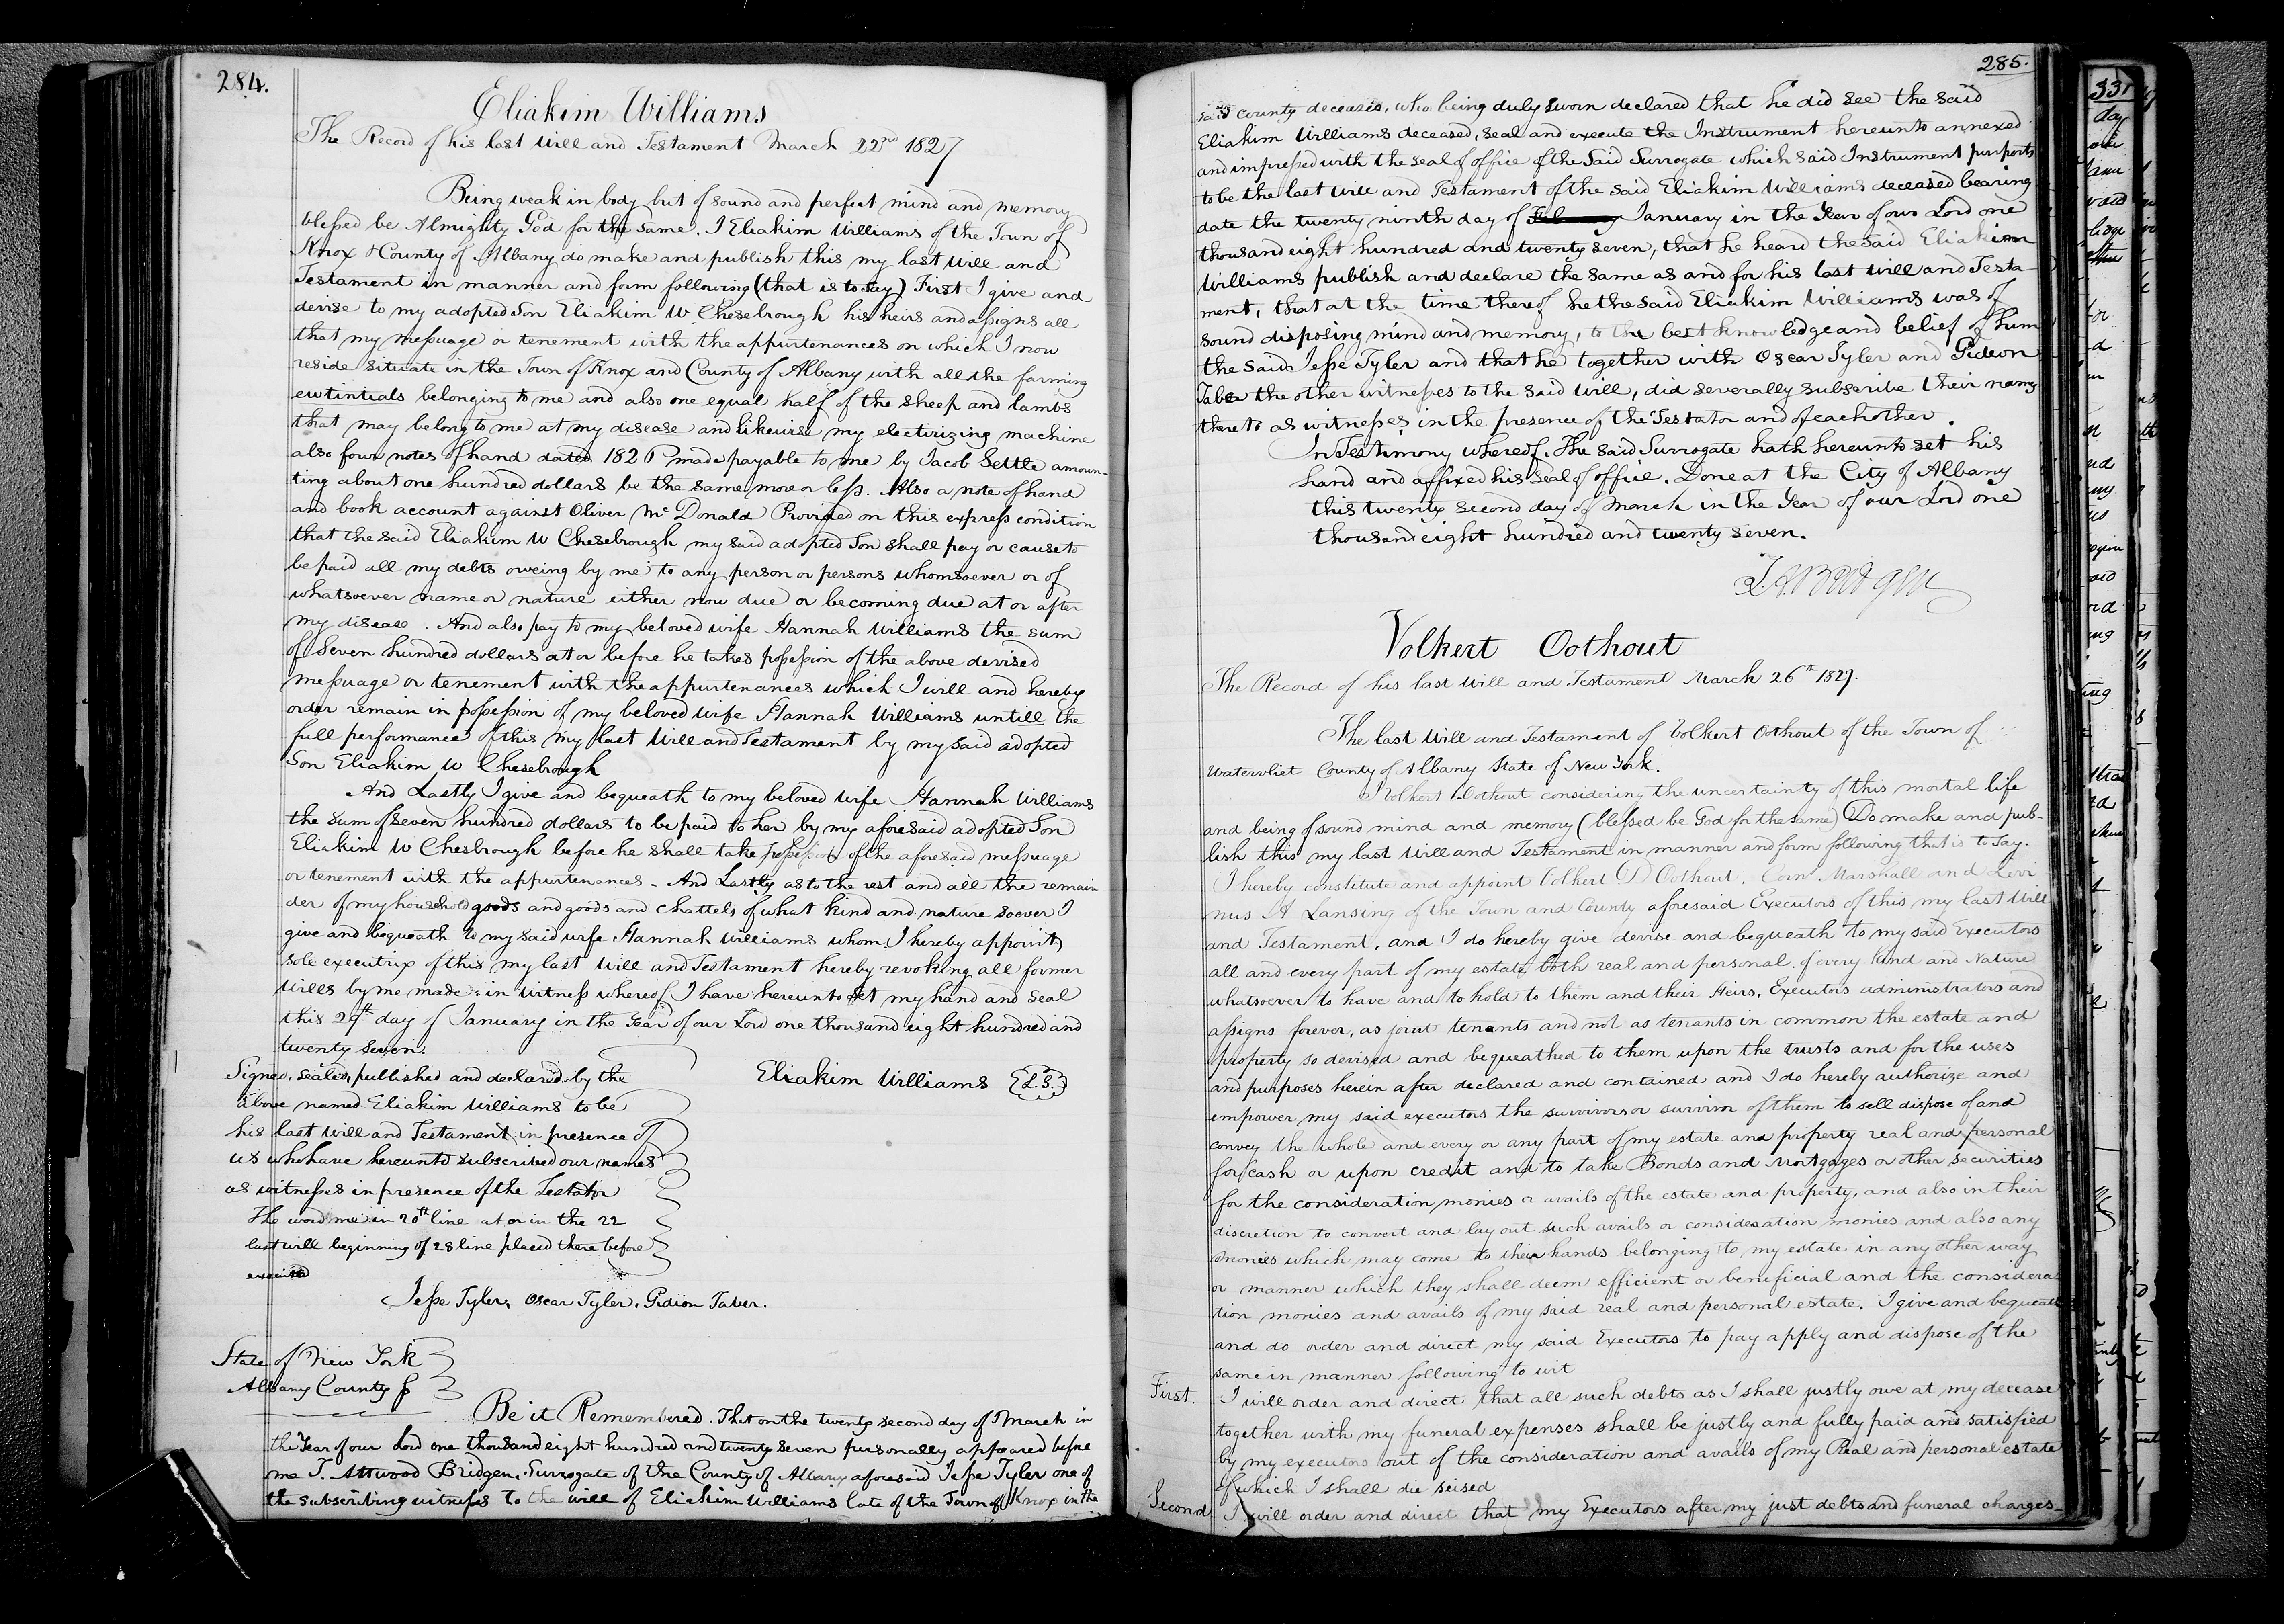 284.
Eliakim Williams
The Record of his last Will and Testament March 22nd 1827
Being weak in body but of sound and perfect mind and memory
blessed be Almighty God for the same. I Eliakim Williams of the Town of
Knox & County of Albany do make and publish this my last Will and
Testament in manner and form following (that is to say) First I give and
devise to my adopted Son Eliakim W Chesebrough his heirs and assigns all
that my messuage or tenement with the appurtenances on which I now
reside situate in the Town of Knox and County of Albany with all the farming
ewtintials belonging to me and also one equal half of the sheep and lambs
that may belong to me at my disease and likewise my electirizing machine
also four notes of hand dated 1826 made payable to me by Jacob Settle amoun-
ting about one hundred dollars be the same more or less. Also a note of hand
and book account against Oliver Mc Donald Provided on this express condition
that the said Eliakim W Chesebrough my said adopted Son shall pay or cause to
be paid all my debts oweing by me to any person or persons whomsoever or of
whatsoever name or nature either now due or becoming due at or after
my disease. And also pay to my beloved wife Hannah Williams the sum
of Seven hundred dollars at or before he takes possession of the above devised
messuage or tenement with the appurtenances which I will and hereby
order remain in possession of my beloved wife Hannah Williams untill the
full performance of this my last Will and Testament by my said adopted
Son Eliakim W Chesebrough
And Lastly I give and bequeath to my beloved wife Hannah Williams
the sum of seven hundred dollars to be paid to her by my aforesaid adopted Son
Eliakim W Chesbrough before he shall take possession of the aforesaid messuage
or tenement with the appurtenances - And Lastly as to the rest and all the remain
der of my household goods and goods and chattels of what kind and nature soever I
give and bequeath to my said wife Hannah Williams whom I hereby appoint
sole executrix of this my last Will and Testament hereby revoking all former
Wills by me made in witness whereof I have hereunto set my hand and seal
this 29th day of January in the Year of our Lord one thousand eight hundred and
twenty seven.
Signed, sealed, published and declared by the
above named Eliakim Williams to be
his last Will and Testament in presence of
us who have hereunto subscribed our names
as witnesses in presence of the Testator
The word me in 20th line at or in the 22
last will beginning of 28 line placed there before
executed
Eliakim Williams L.S.
Jesse Tyler, Oscar Tyler, Gidion Taber.
State of New York
Albany County ss
Be it Remembered. That on the twenty second day of March in
the Year of our Lord one thousand eight hundred and twenty seven personally appeared before
me T. Attwood Bridgen, Surrogate of the County of Albany aforesaid Jesse Tyler one of
the subscribing witnesses to the will of Eliakim Williams late of the Town of Knox in the
285.
said county deceased, who being duly sworn declared that he did see the said
Eliakim Williams deceased, seal and execute the Instrument hereunto annexed
and impressed with the seal of office of the Said Surrogate which said Instrument purports
to be the last will and Testament of the said Eliakim Williams deceased bearing
date the twenty ninth day of January in the Year of our Lord one
thousand eight hundred and twenty seven, that he heard the said Eliakim
Williams publish and declare the same as and for his last will and Testa-
ment, that at the time thereof he the said Eliakim Williams was of
sound disposing mind and memory, to the best knowledge and belief of him
the said Jesse Tyler and that he together with Oscar Tyler and Gideon
Taber the other witnesses to the said will, did severally subscribe their names
thereto as witnesses in the presence of the Testator and of each other.
In Testimony whereof. The said Surrogate hath hereunto set his
hand and affixed his Seal of office. Done at the City of Albany
this twenty second day of March in the Year of our Lord one
thousand eight hundred and twenty seven.
T. A. Bridgen
Volkert Oothout
The Record of his last Will and Testament March 26th 1827.
The last Will and Testament of Volkert Oothout of the Town of
Watervliet County of Albany State of New York.
I Volkert Oothout considering the uncertainty of this mortal life
and being of sound mind and memory (blessed be God for the same) Do make and pub-
lish this my last Will and Testament in manner and form following that is to say.
I hereby constitute and appoint Volkert D Oothout, Marshall and Levi
nus A Lansing of the Town and County aforesaid Executors of this my last Will
and Testament, and I do hereby give devise and bequeath to my said Executors
all and every part of my estate both real and personal of every Kind and Nature
whatsoever to have and to hold to them and their Heirs, Executors administrators and
assigns forever, as joint tenants and not as tenants in common the estate and
property so devised and bequeathed to them upon the trusts and for the uses
and purposes herein after declared and contained and I do hereby authorize and
empower my said executors the survivors or survivor of them to sell dispose of and
convey the whole and every or any part of my estate and property real and personal
for cash or upon credit and to take Bonds and Mortgages or other securities
for the consideration monies or avails of the estate and property, and also in their
discretion to convert and lay out such avails or consideration monies and also any
monies which may come to their hands belonging to my estate in any other way
or manner which they shall deem efficient or beneficial and the considera
tion monies and avails of my said real and personal estate. I give and bequeath
and do order and direct my said Executors to pay apply and dispose of the
same in manner following to wit
First. I will order and direct that all such debts as I shall justly owe at my decease
together with my funeral expenses shall be justly and fully paid and satisfied
by my executors out of the consideration and avails of my Real and personal estate
of which I shall die seised
Second. I will order and direct that my Executors after my just debts and funeral charges